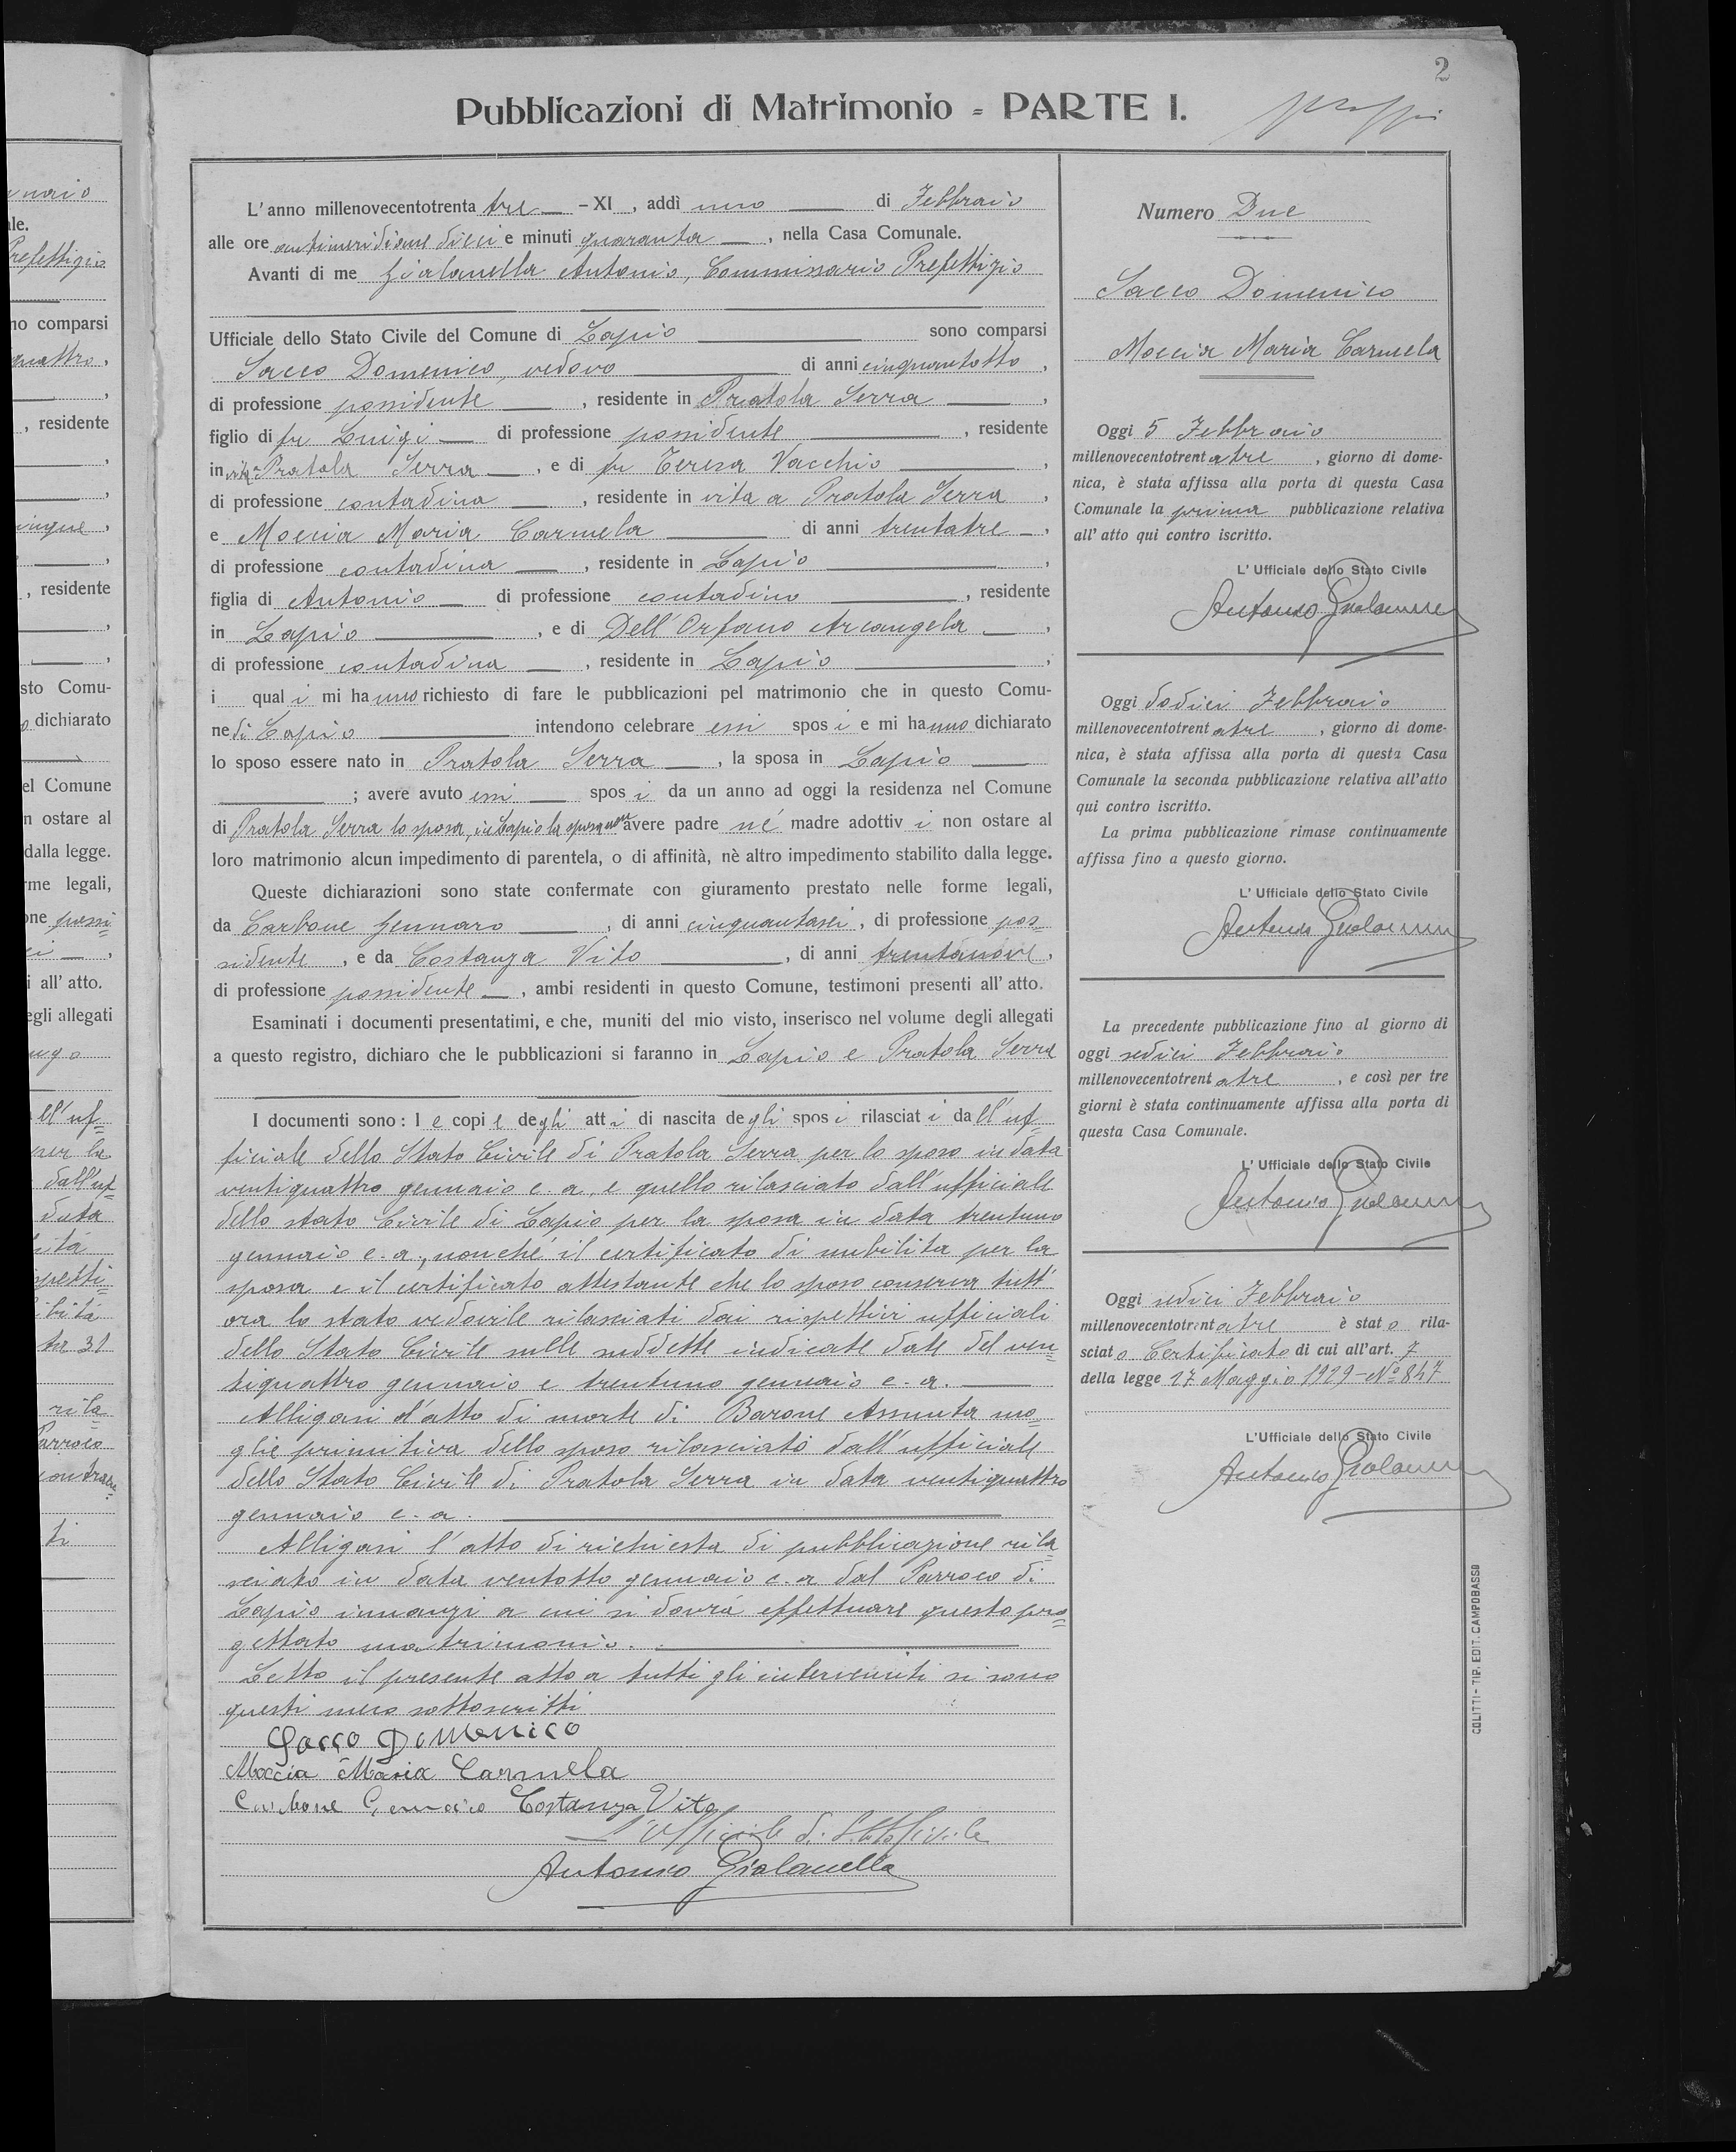 2
Pubblicazioni di Matrimonio = PARTE I.
L'anno millenovecentotrenta tre — - XI , addì uno — di Febbraio
alle ore antimeridiane dieci e minuti quaranta — , nella Casa Comunale.
Avanti di me Gialanella Antonio, Commissario Prefettizio
Ufficiale dello Stato Civile del Comune di Lapio — sono comparsi
Sacco Domenico, vedovo — di anni cinquantotto ,
di professione possidente — , residente in Pratola Serra — ,
figlio di fu Luigi — di professione possidente — , residente
in vita a Pratola Serra — , e di fu Teresa Vacchio — ,
di professione contadina — , residente in vita a Pratola Serra ,
e Moccia Maria Carmela — di anni trentatre — ,
di professione contadina — , residente in Lapio — ,
figlia di Antonio — di professione contadino — , residente
in Lapio — , e di Dell'Orfano Arcangela — ,
di professione contadina — , residente in Lapio — ;
i quali mi hanno richiesto di fare le pubblicazioni pel matrimonio che in questo Comu-
ne di Lapio — intendono celebrare essi sposi e mi hanno dichiarato
lo sposo essere nato in Pratola Serra — , la sposa in Lapio —
— ; avere avuto essi — sposi da un anno ad oggi la residenza nel Comune
di Pratola Serra lo sposo, in Lapio la sposa non avere padre né madre adottivi non ostare al
loro matrimonio alcun impedimento di parentela, o di affinità, nè altro impedimento stabilito dalla legge.
Queste dichiarazioni sono state confermate con giuramento prestato nelle forme legali,
da Carbone Gennaro — , di anni cinquantasei , di professione pos=
sidente , e da Costanza Vito — , di anni trentanove ,
di professione possidente — , ambi residenti in questo Comune, testimoni presenti all'atto.
Esaminati i documenti presentatimi, e che, muniti del mio visto, inserisco nel volume degli allegati
a questo registro, dichiaro che le pubblicazioni si faranno in Lapio e Pratola Serra
I documenti sono: le copie degli atti di nascita degli sposi rilasciati dall'uf=
ficiale dello Stato Civile di Pratola Serra per lo sposo in data
ventiquattro gennaio c. a., e quello rilasciato dall'ufficiale
dello stato Civile di Lapio per la sposa in data trentuno
gennaio c. a., nonché il certificato di nubilità per la
sposa e il certificato attestante che lo sposo conserva tutt'
ora lo stato vedovile rilasciati dai rispettivi ufficiali
dello Stato Civile nelle suddette indicate date del ven=
tiquattro gennaio e trentuno gennaio c. a. —
Alligasi l'atto di morte di Barone Assunta mo=
glie primitiva dello sposo rilasciato dall'ufficiale
dello Stato Civile di Pratola Serra in data ventiquattro
gennaio c. a. —
Alligasi l'atto di richiesta di pubblicazione rila=
sciato in data ventotto gennaio c. a dal Parroco di
Lapio innanzi a cui si dovrà effettuare questo pro=
gettato matrimonio. —
Letto il presente atto a tutti gli intervenuti si sono
questi meco sottoscritti
Sacco Domenico
Moccia Maria Carmela
Carbone Gennaro Costanza Vito
L'Ufficiale di Stato Civile
Antonio Gialanella
Numero Due
Sacco Domenico
Moccia Maria Carmela
Oggi 5 Febbraio
millenovecentotrentatre , giorno di dome-
nica, è stata affissa alla porta di questa Casa
Comunale la prima pubblicazione relativa
all'atto qui contro iscritto.
L'Ufficiale dello Stato Civile
Antonio Gialanella
Oggi dodici Febbraio
millenovecentotrentatre , giorno di dome-
nica, è stata affissa alla porta di questa Casa
Comunale la seconda pubblicazione relativa all'atto
qui contro iscritto.
La prima pubblicazione rimase continuamente
affissa fino a questo giorno.
L'Ufficiale dello Stato Civile
Antonio Gialanella
La precedente pubblicazione fino al giorno di
oggi sedici Febbraio
millenovecentotrentatre , e così per tre
giorni è stata continuamente affissa alla porta di
questa Casa Comunale.
L'Ufficiale dello Stato Civile
Antonio Gialanella
Oggi sedici Febbraio
millenovecentotrentatre è stato rila-
sciato Certificato di cui all'art. 7
della legge 27 Maggio 1929 - N° 847
L'Ufficiale dello Stato Civile
Antonio Gialanella
COLITTI - TIP. EDIT. CAMPOBASSO